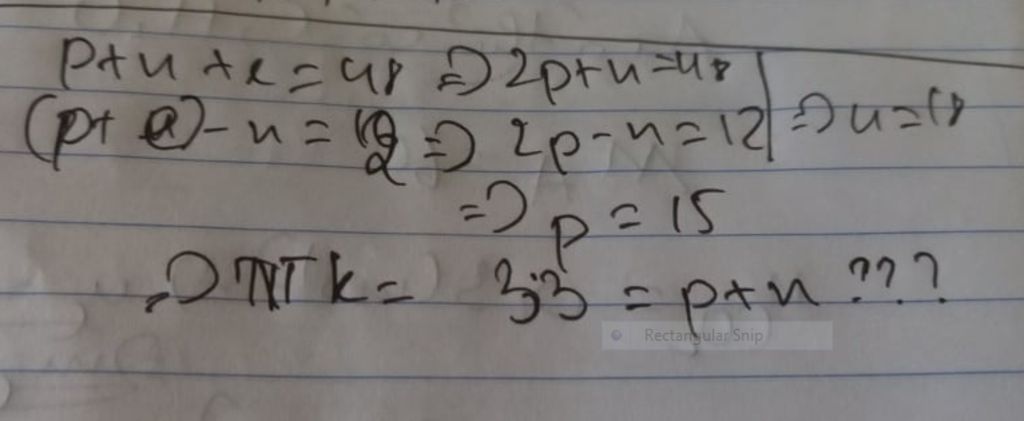 p+n+e=48 => 2p+n=48
(p+e)-n=12 => 2p-n=12 | => n=18
=> p=15
=> NTK= 33 = p+n ???
Rectangular Snip